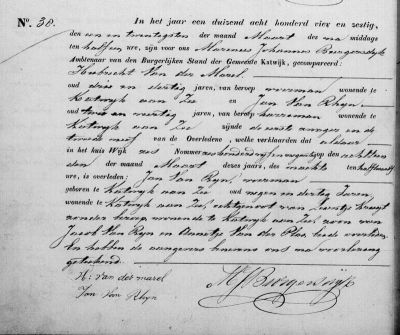 N°. 38.
In het jaar een duizend acht honderd vier en zestig,
den een en twintigsten der maand Maart des na middags
ten half een ure, zijn voor ons Marinus Johannes Burgersdijk
Ambtenaar van den Burgerlijken Stand der Gemeente Katwijk, gecompareerd:
Huibrecht van der Marel
oud drie en dertig jaren, van beroep zeeman wonende te
Katwijk aan Zee en Jan van Rhyn
oud twee en veertig jaren, van beroep wonende te
Katwijk aan Zee zijnde de eerste zwager en de
tweede neef van de Overledene, welke verklaarden dat aldaar
in het huis Wijk Nommer op den achttien
den der maand Maart dezes jaars, des nachts ten half
ure, is overleden: Jan van Ryn, zeeman
geboren te Katwijk aan Zee oud negen en dertig Jaren,
wonende te Katwijk aan Zee, echtgenoot van Kruyt
zonder beroep, wonende te Katwijk aan Zee, zoon van
Jacob van Ryn en Annetje van der Plas, beide overleden.
En hebben de aangevers nevens ons na voorlezing
geteekend.
H: van der marel
Jan van Rhyn
MJBurgersdijk